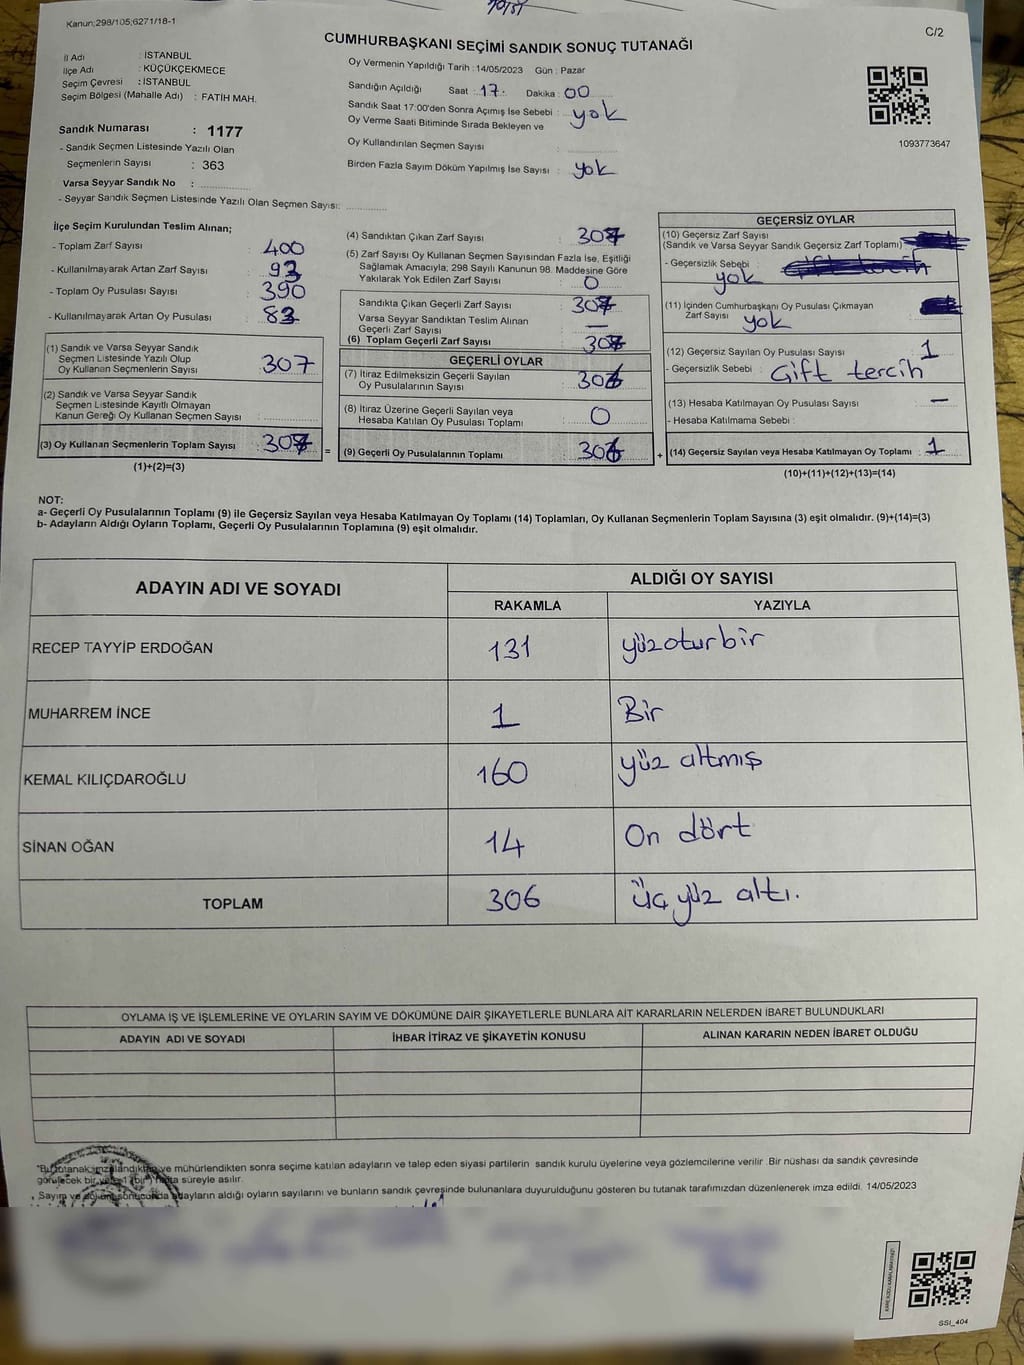 10/51
Kanun;298/105;6271/18-1
C/2
CUMHURBAŞKANI SEÇİMİ SANDIK SONUÇ TUTANAĞI
İl Adı : İSTANBUL
İlçe Adı : KÜÇÜKÇEKMECE
Seçim Çevresi : İSTANBUL
Seçim Bölgesi (Mahalle Adı) : FATİH MAH.
Sandık Numarası : 1177
- Sandık Seçmen Listesinde Yazılı Olan
Seçmenlerin Sayısı : 363
Varsa Seyyar Sandık No :
- Seyyar Sandık Seçmen Listesinde Yazılı Olan Seçmen Sayısı:
Oy Vermenin Yapıldığı Tarih : 14/05/2023 Gün : Pazar
Sandığın Açıldığı Saat : 17 Dakika : 00
Sandık Saat 17:00'den Sonra Açımış İse Sebebi : yok
Oy Verme Saati Bitiminde Sırada Bekleyen ve
Oy Kullandırılan Seçmen Sayısı :
Birden Fazla Sayım Döküm Yapılmış İse Sayısı : yok
1093773647
İlçe Seçim Kurulundan Teslim Alınan;
- Toplam Zarf Sayısı 400
- Kullanılmayarak Artan Zarf Sayısı : 93
- Toplam Oy Pusulası Sayısı : 390
- Kullanılmayarak Artan Oy Pusulası : 83
(1) Sandık ve Varsa Seyyar Sandık
Seçmen Listesinde Yazılı Olup
Oy Kullanan Seçmenlerin Sayısı : 307
(2) Sandık ve Varsa Seyyar Sandık
Seçmen Listesinde Kayıtlı Olmayan
Kanun Gereği Oy Kullanan Seçmen Sayısı :
(3) Oy Kullanan Seçmenlerin Toplam Sayısı : 307
(1)+(2)=(3)
=
(4) Sandıktan Çıkan Zarf Sayısı : 307
(5) Zarf Sayısı Oy Kullanan Seçmen Sayısından Fazla İse, Eşitliği
Sağlamak Amacıyla; 298 Sayılı Kanunun 98. Maddesine Göre
Yakılarak Yok Edilen Zarf Sayısı : 0
Sandıkta Çıkan Geçerli Zarf Sayısı : 307
Varsa Seyyar Sandıktan Teslim Alınan
Geçerli Zarf Sayısı : —
(6) Toplam Geçerli Zarf Sayısı : 307
GEÇERLİ OYLAR
(7) İtiraz Edilmeksizin Geçerli Sayılan
Oy Pusulalarının Sayısı : 306
(8) İtiraz Üzerine Geçerli Sayılan veya
Hesaba Katılan Oy Pusulası Toplamı : 0
(9) Geçerli Oy Pusulalarının Toplamı : 306
+
GEÇERSİZ OYLAR
(10) Geçersiz Zarf Sayısı
(Sandık ve Varsa Seyyar Sandık Geçersiz Zarf Toplamı)
- Geçersizlik Sebebi : Çift tercih
yok
(11) İçinden Cumhurbaşkanı Oy Pusulası Çıkmayan
Zarf Sayısı yok
(12) Geçersiz Sayılan Oy Pusulası Sayısı : 1
- Geçersizlik Sebebi : Çift tercih
(13) Hesaba Katılmayan Oy Pusulası Sayısı : —
- Hesaba Katılmama Sebebi :
(14) Geçersiz Sayılan veya Hesaba Katılmayan Oy Toplamı : 1
(10)+(11)+(12)+(13)=(14)
NOT:
a- Geçerli Oy Pusulalarının Toplamı (9) ile Geçersiz Sayılan veya Hesaba Katılmayan Oy Toplamı (14) Toplamları, Oy Kullanan Seçmenlerin Toplam Sayısına (3) eşit olmalıdır. (9)+(14)=(3)
b- Adayların Aldığı Oyların Toplamı, Geçerli Oy Pusulalarının Toplamına (9) eşit olmalıdır.
ADAYIN ADI VE SOYADI ALDIĞI OY SAYISI
RAKAMLA YAZIYLA
RECEP TAYYİP ERDOĞAN 131 yüzoturbir
MUHARREM İNCE 1 Bir
KEMAL KILIÇDAROĞLU 160 yüz altmış
SİNAN OĞAN 14 On dört
TOPLAM 306 üç yüz altı.
OYLAMA İŞ VE İŞLEMLERİNE VE OYLARIN SAYIM VE DÖKÜMÜNE DAİR ŞİKAYETLERLE BUNLARA AİT KARARLARIN NELERDEN İBARET BULUNDUKLARI
ADAYIN ADI VE SOYADI İHBAR İTİRAZ VE ŞİKAYETİN KONUSU ALINAN KARARIN NEDEN İBARET OLDUĞU
"Bu tutanak imzalandıktan ve mühürlendikten sonra seçime katılan adayların ve talep eden siyasi partilerin sandık kurulu üyelerine veya gözlemcilerine verilir. Bir nüshası da sandık çevresinde
görülecek bir yere 1 (bir) hafta süreyle asılır.
Sayım ve döküm sonucunda adayların aldığı oyların sayılarını ve bunların sandık çevresinde bulunanlara duyurulduğunu gösteren bu tutanak tarafımızdan düzenlenerek imza edildi. 14/05/2023
SSI_404